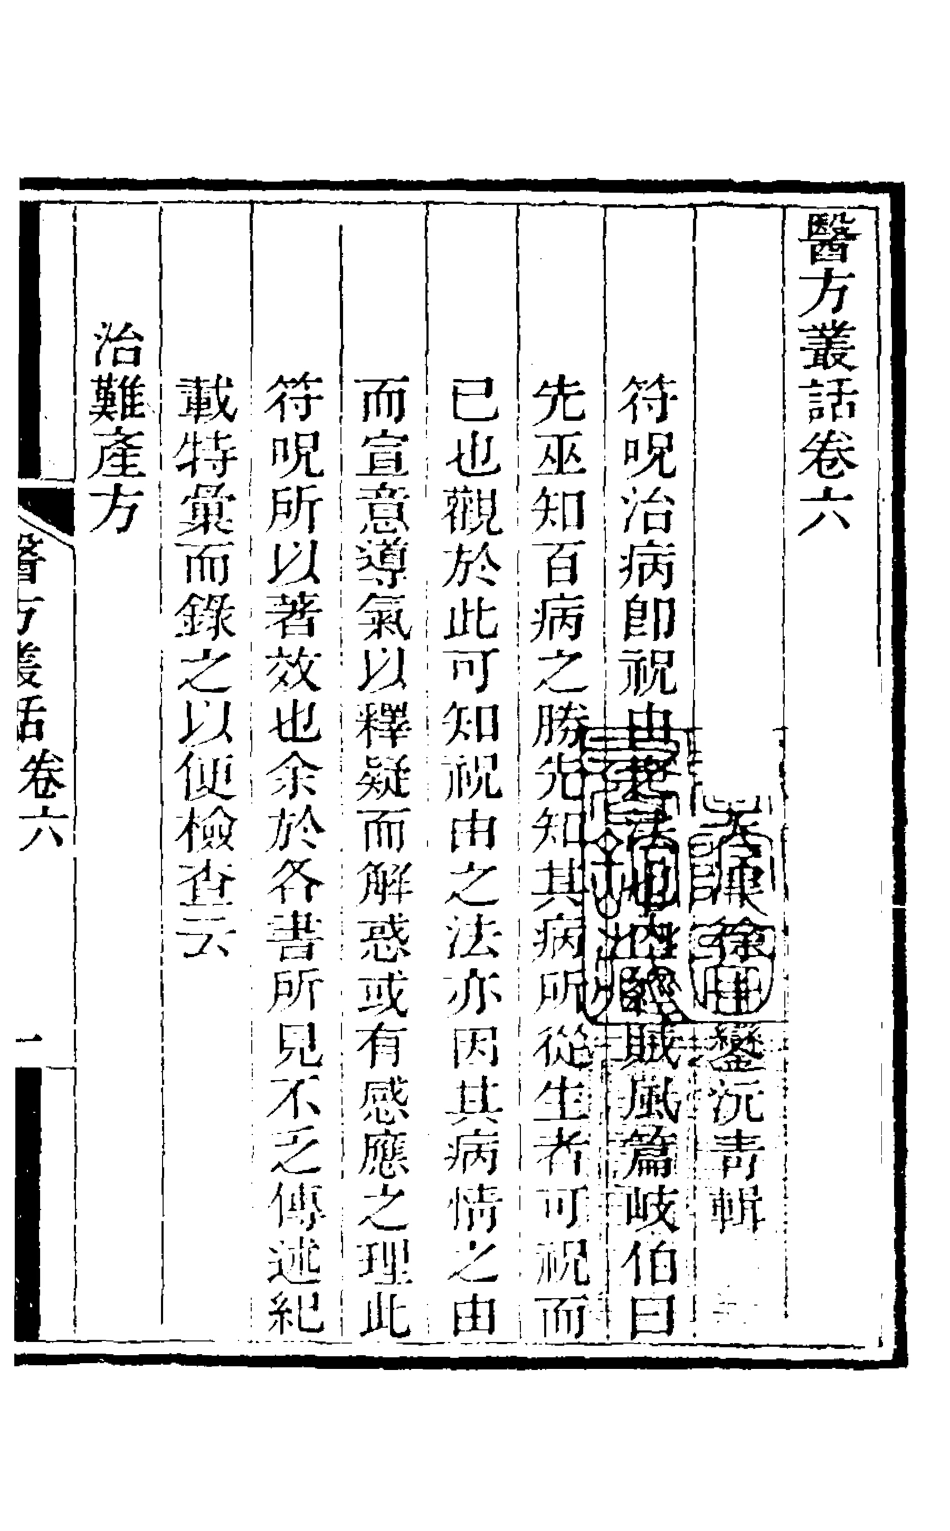 醫方叢話卷六
天津徐士鑾沅青輯
符呪治病即祝由之法也内經賊風篇岐伯曰
先巫知百病之勝先知其病所從生者可祝而
已也觀於此可知祝由之法亦因其病情之由
而宣意導氣以釋疑而解惑或有感應之理此
符呪所以著效也余於各書所見不乏傳述紀
載特彙而錄之以便檢查云
治難產方
醫方叢話卷六
一